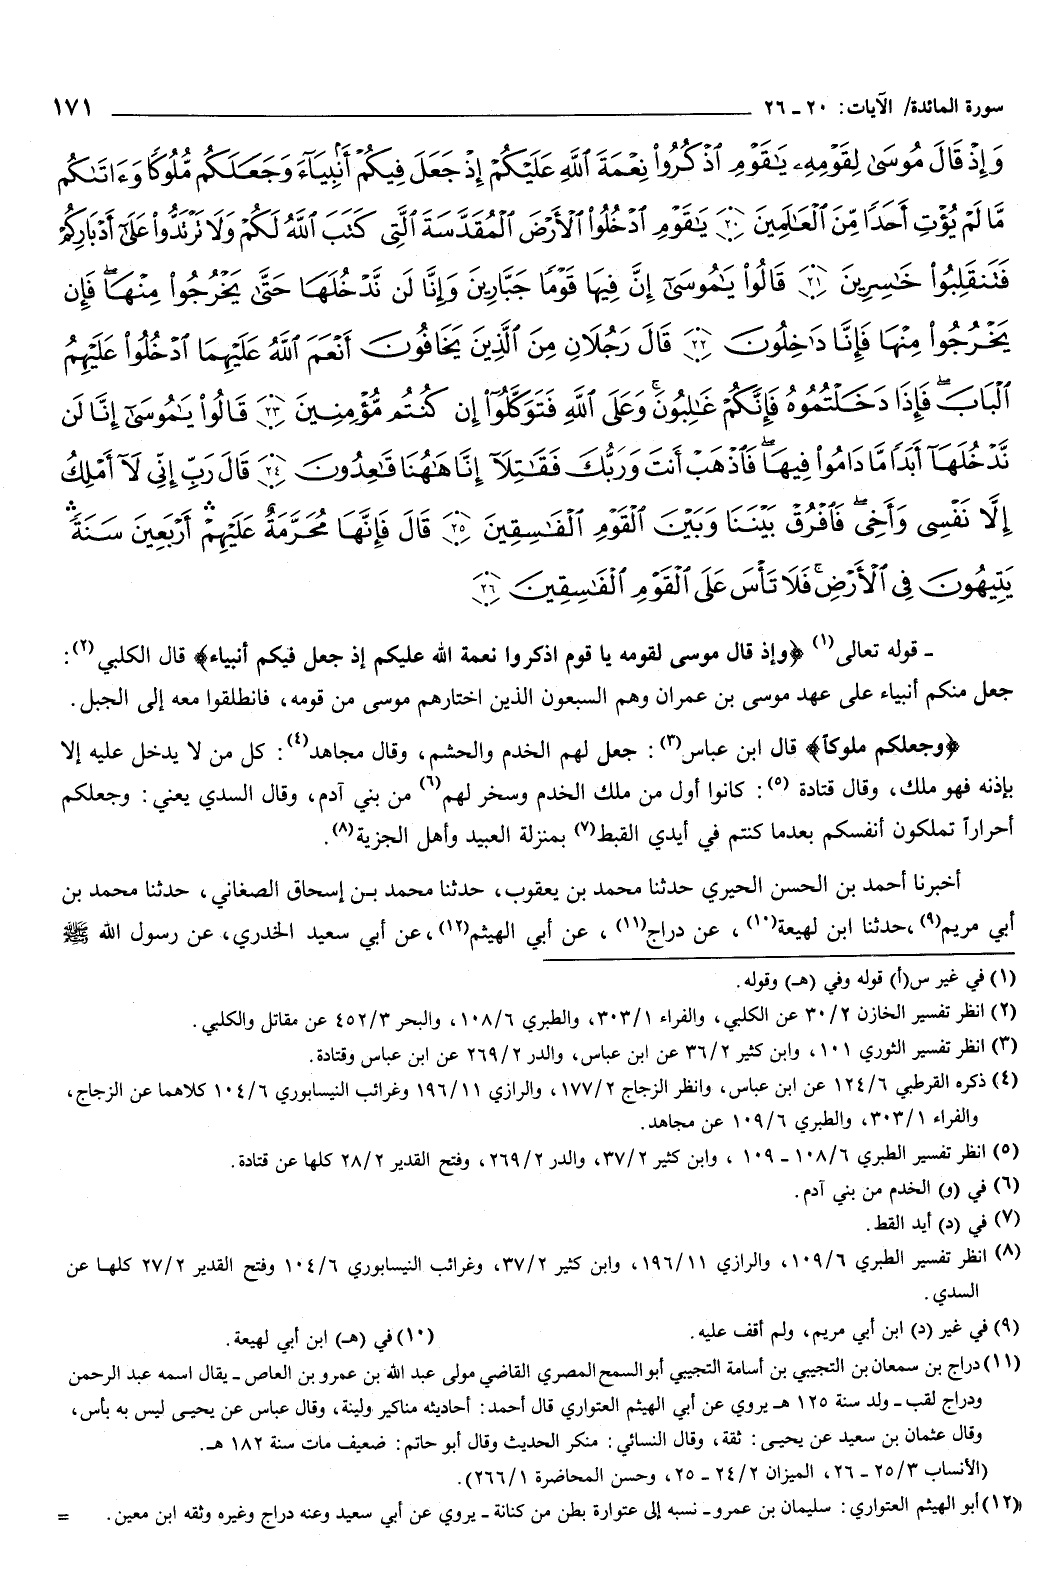 سورة المائدة/ الآيات: ٢٠ ـ ٢٦ ١٧١
وَإِذْ قَالَ مُوسَىٰ لِقَوْمِهِۦ يَٰقَوْمِ ٱذْكُرُوا۟ نِعْمَةَ ٱللَّهِ عَلَيْكُمْ إِذْ جَعَلَ فِيكُمْ أَنۢبِيَآءَ وَجَعَلَكُم مُّلُوكًا وَءَاتَىٰكُم
مَّا لَمْ يُؤْتِ أَحَدًا مِّنَ ٱلْعَٰلَمِينَ ٢٠ يَٰقَوْمِ ٱدْخُلُوا۟ ٱلْأَرْضَ ٱلْمُقَدَّسَةَ ٱلَّتِى كَتَبَ ٱللَّهُ لَكُمْ وَلَا تَرْتَدُّوا۟ عَلَىٰٓ أَدْبَارِكُمْ
فَتَنقَلِبُوا۟ خَٰسِرِينَ ٢١ قَالُوا۟ يَٰمُوسَىٰٓ إِنَّ فِيهَا قَوْمًا جَبَّارِينَ وَإِنَّا لَن نَّدْخُلَهَا حَتَّىٰ يَخْرُجُوا۟ مِنْهَا ۖ فَإِن
يَخْرُجُوا۟ مِنْهَا فَإِنَّا دَٰخِلُونَ ٢٢ قَالَ رَجُلَانِ مِنَ ٱلَّذِينَ يَخَافُونَ أَنْعَمَ ٱللَّهُ عَلَيْهِمَا ٱدْخُلُوا۟ عَلَيْهِمُ
ٱلْبَابَ ۖ فَإِذَا دَخَلْتُمُوهُ فَإِنَّكُمْ غَٰلِبُونَ ۚ وَعَلَى ٱللَّهِ فَتَوَكَّلُوٓا۟ إِن كُنتُم مُّؤْمِنِينَ ٢٣ قَالُوا۟ يَٰمُوسَىٰٓ إِنَّا لَن
نَّدْخُلَهَآ أَبَدًا مَّا دَامُوا۟ فِيهَا ۖ فَٱذْهَبْ أَنتَ وَرَبُّكَ فَقَٰتِلَآ إِنَّا هَٰهُنَا قَٰعِدُونَ ٢٤ قَالَ رَبِّ إِنِّى لَآ أَمْلِكُ
إِلَّا نَفْسِى وَأَخِى ۖ فَٱفْرُقْ بَيْنَنَا وَبَيْنَ ٱلْقَوْمِ ٱلْفَٰسِقِينَ ٢٥ قَالَ فَإِنَّهَا مُحَرَّمَةٌ عَلَيْهِمْ ۛ أَرْبَعِينَ سَنَةً ۛ
يَتِيهُونَ فِى ٱلْأَرْضِ ۚ فَلَا تَأْسَ عَلَى ٱلْقَوْمِ ٱلْفَٰسِقِينَ ٢٦
ـ قوله تعالى(١) ﴿وإذ قال موسى لقومه يا قوم اذكروا نعمة الله عليكم إذ جعل فيكم أنبياء﴾ قال الكلبي(٢):
جعل منكم أنبياء على عهد موسى بن عمران وهم السبعون الذين اختارهم موسى من قومه، فانطلقوا معه إلى الجبل.
﴿وجعلكم ملوكاً﴾ قال ابن عباس(٣): جعل لهم الخدم والحشم، وقال مجاهد(٤): كل من لا يدخل عليه إلا
بإذنه فهو ملك، وقال قتادة (٥): كانوا أول من ملك الخدم وسخر لهم(٦) من بني آدم، وقال السدي يعني: وجعلكم
أحراراً تملكون أنفسكم بعدما كنتم في أيدي القبط(٧) بمنزلة العبيد وأهل الجزية(٨).
أخبرنا أحمد بن الحسن الحيري حدثنا محمد بن يعقوب، حدثنا محمد بـن إسحاق الصغاني، حدثنا محمد بن
أبي مريم(٩)، حدثنا ابن لهيعة(١٠)، عن دراج(١١)، عن أبي الهيثم(١٢)، عن أبي سعيد الخدري، عن رسول الله ﷺ
(١) في غير س(أ) قوله وفي (هـ) وقوله.
(٢) انظر تفسير الخازن ٣٠/٢ عن الكلبي، والفراء ٣٠٣/١، والطبري ١٠٨/٦، والبحر ٤٥٢/٣ عن مقاتل والكلبي.
(٣) انظر تفسير الثوري ١٠١، وابن كثير ٣٦/٢ عن ابن عباس، والدر ٢٦٩/٢ عن ابن عباس وقتادة.
(٤) ذكره القرطبي ١٢٤/٦ عن ابن عباس، وانظر الزجاج ١٧٧/٢، والرازي ١٩٦/١١ وغرائب النيسابوري ١٠٤/٦ كلاهما عن الزجاج،
والفراء ٣٠٣/١، والطبري ١٠٩/٦ عن مجاهد.
(٥) انظر تفسير الطبري ١٠٨/٦ ـ ١٠٩، وابن كثير ٣٧/٢، والدر ٢٦٩/٢، وفتح القدير ٢٨/٢ كلها عن قتادة.
(٦) في (و) الخدم من بني آدم.
(٧) في (د) أيد القط.
(٨) انظر تفسير الطبري ١٠٩/٦، والرازي ١٩٦/١١، وابن كثير ٣٧/٢، وغرائب النيسابوري ١٠٤/٦ وفتح القدير ٢٧/٢ كلهـا عن
السدي.
(٩) في غير (د) ابن أبي مريم، ولم أقف عليه. (١٠) في (هـ) ابن أبي لهيعة.
(١١) دراج بن سمعان بن التجيبي بن أسامة التجيبي أبو السمح المصري القاضي مولى عبد الله بن عمرو بن العاص ـ يقال اسمه عبد الرحمن
ودراج لقب ـ ولد سنة ١٢٥ هـ يروي عن أبي الهيثم العتواري قال أحمد: أحاديثه مناكير ولينة، وقال عباس عن يحيـى ليس به بأس،
وقال عثمان بن سعيد عن يحيـى: ثقة، وقال النسائي: منكر الحديث وقال أبو حاتم: ضعيف مات سنة ١٨٢ هـ.
(الأنساب ٢٥/٣ ـ ٢٦، الميزان ٢٤/٢ ـ ٢٥، وحسن المحاضرة ٢٦٦/١).
(١٢) أبو الهيثم العتواري: سليمان بن عمرو ـ نسبه إلى عتوارة بطن من كنانة ـ يروي عن أبي سعيد وعنه دراج وغيره وثقه ابن معين. =